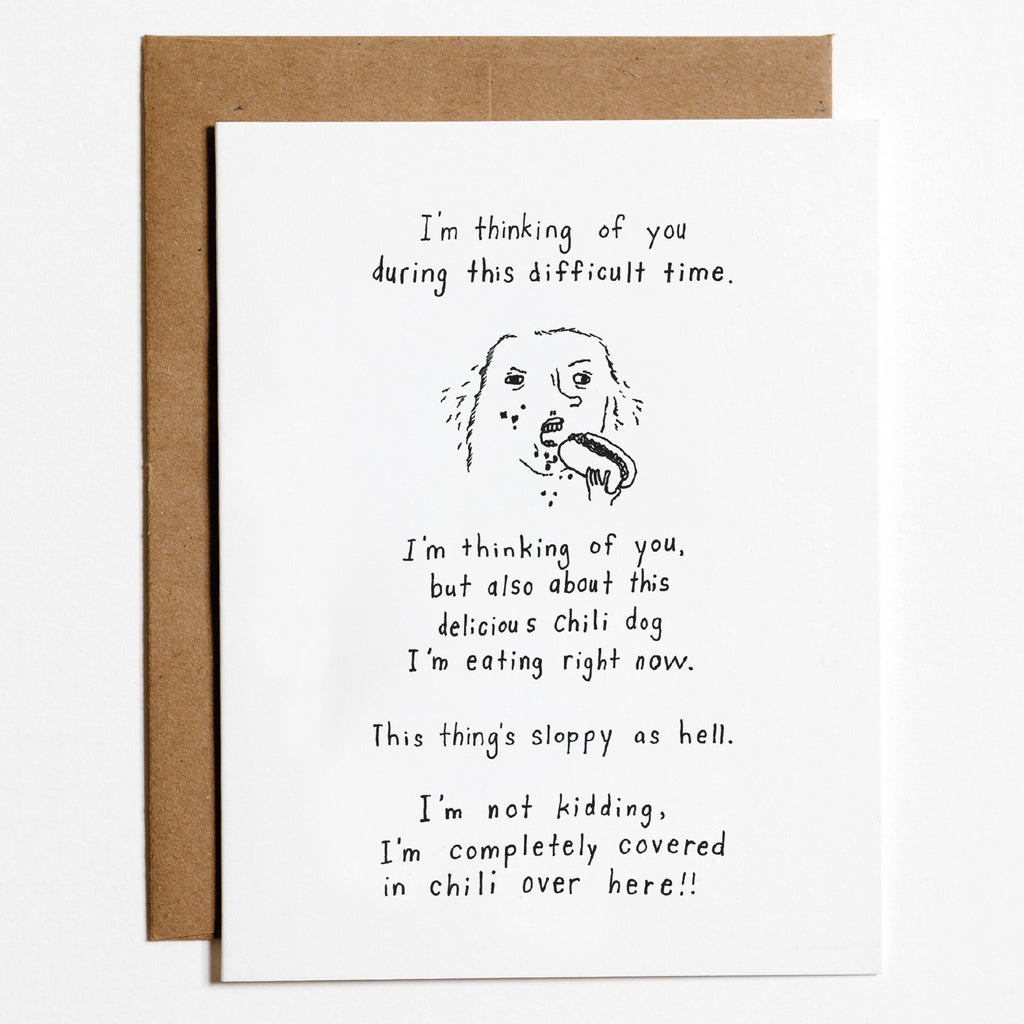 I'm thinking of you
during this difficult time.
I'm thinking of you,
but also about this
delicious chili dog
I'm eating right now.
This thing's sloppy as hell.
I'm not kidding,
I'm completely covered
in chili over here!!